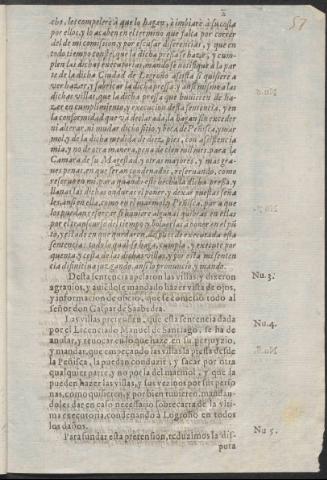 2
57
cho, les compelerè à que lo hagan, è imbiarè à su costa
por ellos, y lo acaben en el termino que falta por correr
del de mi comision, y por escusar diferencias, y que en
todo tiempo conste, que la dicha presa se hazer, y cum-
plen las dichas executorias, mando se notifique à la par
te de la dicha Ciudad de Logroño assista si quisiere à
ver hazer, y fabricar la dicha presa, y ansi mismo a las
dichas villas, que la dicha presa que huuieren de ha-
zer en cumplimiento, y execucion desta sentencia, y en
la conformidad que và declarada, la hagan sin exceder
ni alterar, ni mudar dicho sitio, y boca de Peñisca, y mar
mol, y de la dicha medida, de diez, pies, con assistencia
mia, y no de otra manera, pena de cien mil mrs. para la
Camara de su Magestad, y otras mayores, y mas gra-
mes penas, en que seran condenados, reseruando, como
reseruo en mi, para quando estè hecha la dicha presa, y
llana las dichas en durar el poner, y dexar puestas seña
les, ansi en ella, como en el marmol, y Peñisca, para que
los puedan
por el transcurso del tiempo, y boluerlas a abonar en el pũ
to, y estado en que quedaren, despues de executada esta
sentencia: todo lo qual se haga, cumpla, y execute por
quenta, y costa de las dichas villas, y por esta mi senten
cia difinitiua juzgando, ansi lo pronuncio, y mando.
Desta sentencia apelaron las villas, y dixeron Nu. 3.
agrauios, y auiẽdose mandado hazer vista de ojos,
y informacion de oficio, que se cometio todo al
señor don Gaspar de Saabedra.
Las villas pretenden, que esta sentencia dada Nu. 4.
por el Licenciado Manuel de Santiago, se ha de
anular, y reuocar en lo que haze en su perjuyzio,
y mandar, que empeçando las villas la presa desde
la Peñisca, la puedan conduzir, y sacar por otra
qualquier parte, y no por la del marmol, y que la
pueden hazer las villas, y sus vezinos por sus perso
nas, como quisieren, y por bien tuuieren, mandan-
doles dar en caso necessario sobrecarta de la vlti-
ma executoria, condenando à Logroño en todos
los daños.
Para fundar esta pretension, reduzimos la dis- Nu 5.
puta